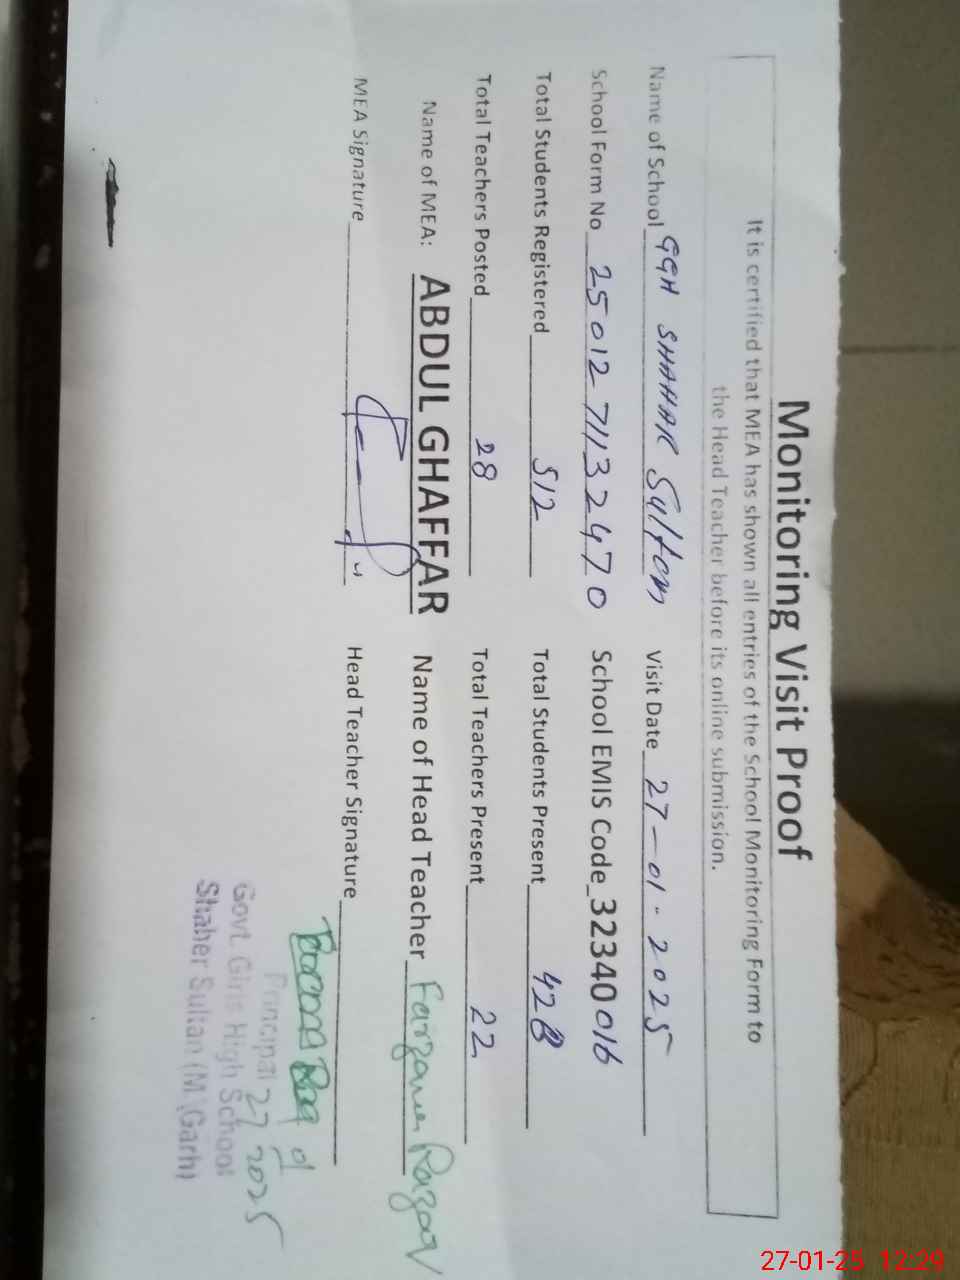 Monitoring Visit Proof
It is certified that MEA has shown all entries of the School Monitoring Form to
the Head Teacher before its online submission.
Name of School GGH SHAHAR Sultan Visit Date 27-01-2025
School Form No 2501271132470 School EMIS Code 32340016
Total Students Registered 512 Total Students Present 428
Total Teachers Posted 28 Total Teachers Present 22
Name of MEA: ABDUL GHAFFAR Name of Head Teacher Farzana
MEA Signature Head Teacher Signature
Principal 27
Govt. Girls High School 2025
Shaher Sultan (M.Garh)
27-01-25 12:29